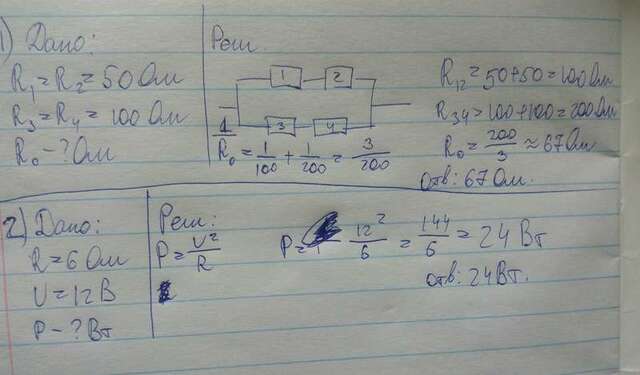 1) Дано:
R₁=R₂=50 Ом
R₃=R₄=100 Ом
R₀ - ? Ом
Реш.
1 2
3 4
1/R₀ = 1/100 + 1/200 = 3/200
R₁₂=50+50=100 Ом
R₃₄=100+100=200 Ом
R₀= 200/3 ≈ 67 Ом
Отв: 67 Ом.
2) Дано:
R=6 Ом
U=12 В
P - ? Вт
Реш:
P= U²/R
P= 12²/6 = 144/6 = 24 Вт
Отв: 24 Вт.